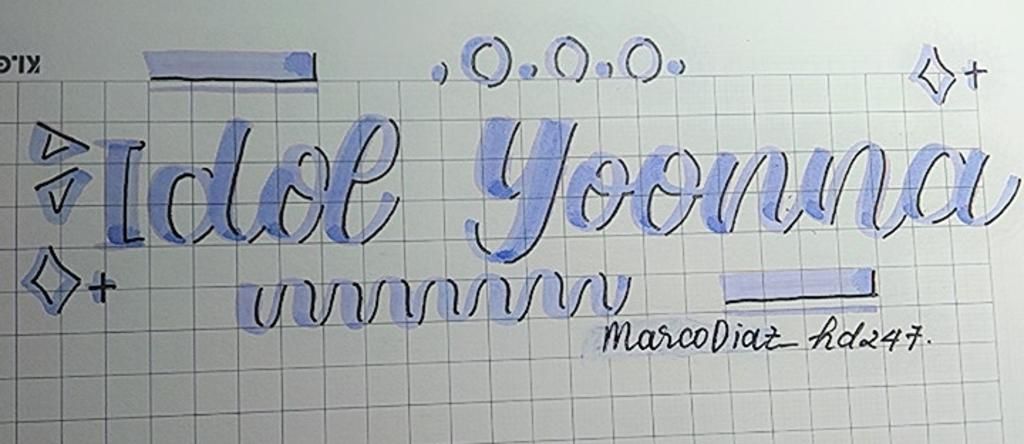 Idol Yoonna
MarcoDiaz_hd247.